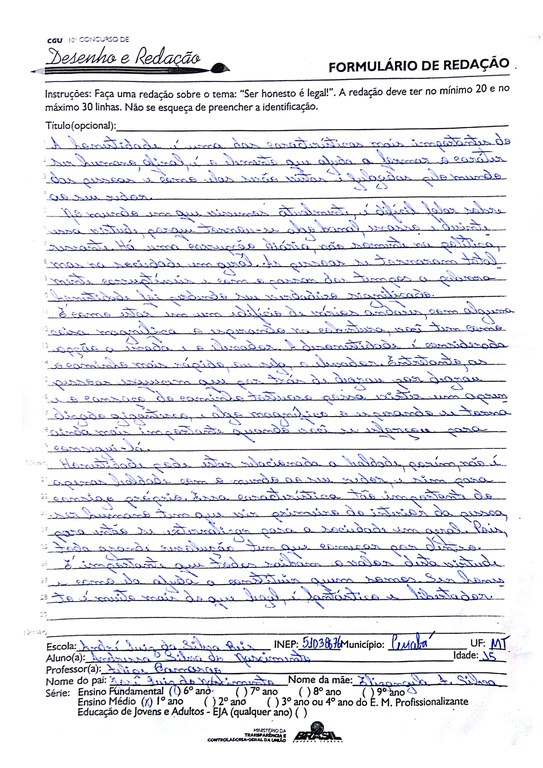 CGU 10º CONCURSO DE
Desenho e Redação
FORMULÁRIO DE REDAÇÃO
Instruções: Faça uma redação sobre o tema: "Ser honesto é legal!". A redação deve ter no mínimo 20 e no
máximo 30 linhas. Não se esqueça de preencher a identificação.
Título(opcional):
A honestidade é uma das características mais importantes do
ser humano afinal, é o elemento que ajuda a formar o caráter
das pessoas e como elas serão vistas e julgadas pelo mundo
ao seu redor.
No mundo em que vivemos atualmente, é difícil falar sobre
essa virtude, porque tornou-se algo
Há uma corrupção diária, não somente na política,
mas na sociedade em geral. As pessoas se tornaram total
mente corruptíveis e com o passar do tempo a palavra
honestidade foi perdendo seu verdadeiro significado.
É como estar em um edifício de vários andares, com alguma
coisa magnífica o esperando na cobertura, você tem como
opção a escada e o elevador. A desonestidade é considerada
o caminho mais rápido, ou seja, o elevador. Entretanto, as
pessoas esquecem que por trás de degrau por degrau
e o cansaço do caminho tortuoso possa existir um apren
dizado gigantesco, e algo magnífico o esperando se torna
ainda mais importante quando você se esforçou para
consegui-lo.
Honestidade pode estar relacionada a lealdade, porém, não é
apenas lealdade com o mundo ao seu redor, e sim para
consigo próprio. Essa característica tão importante do
ser humano tem que vir primeiro do interior da pessoa,
para então se externalizar para a sociedade em geral. Pois,
toda grande revolução tem que começar por dentro.
É importante que todos saibam o valor desta virtude
e como ela ajuda a constituir quem somos. Ser hones
to é muito mais do que legal, é fantástico e libertador.
Escola: André Luiz da Silva Reis INEP: Município: Cuiabá UF: MT
Aluno(a): Silva do Nascimento Idade: 15
Professor(a): Camargo
Nome do pai: José Luiz do Nascimento Nome da mãe: Elizangela A. Silva
Série: Ensino Fundamental ( ) 6º ano ( ) 7º ano ( ) 8º ano ( ) 9º ano
Ensino Médio (x) 1º ano ( ) 2º ano ( ) 3º ano ou 4º ano do E. M. Profissionalizante
Educação de Jovens e Adultos - EJA (qualquer ano) ( )
MINISTÉRIO DA
TRANSPARÊNCIA E
CONTROLADORIA-GERAL DA UNIÃO
BRASIL
GOVERNO FEDERAL